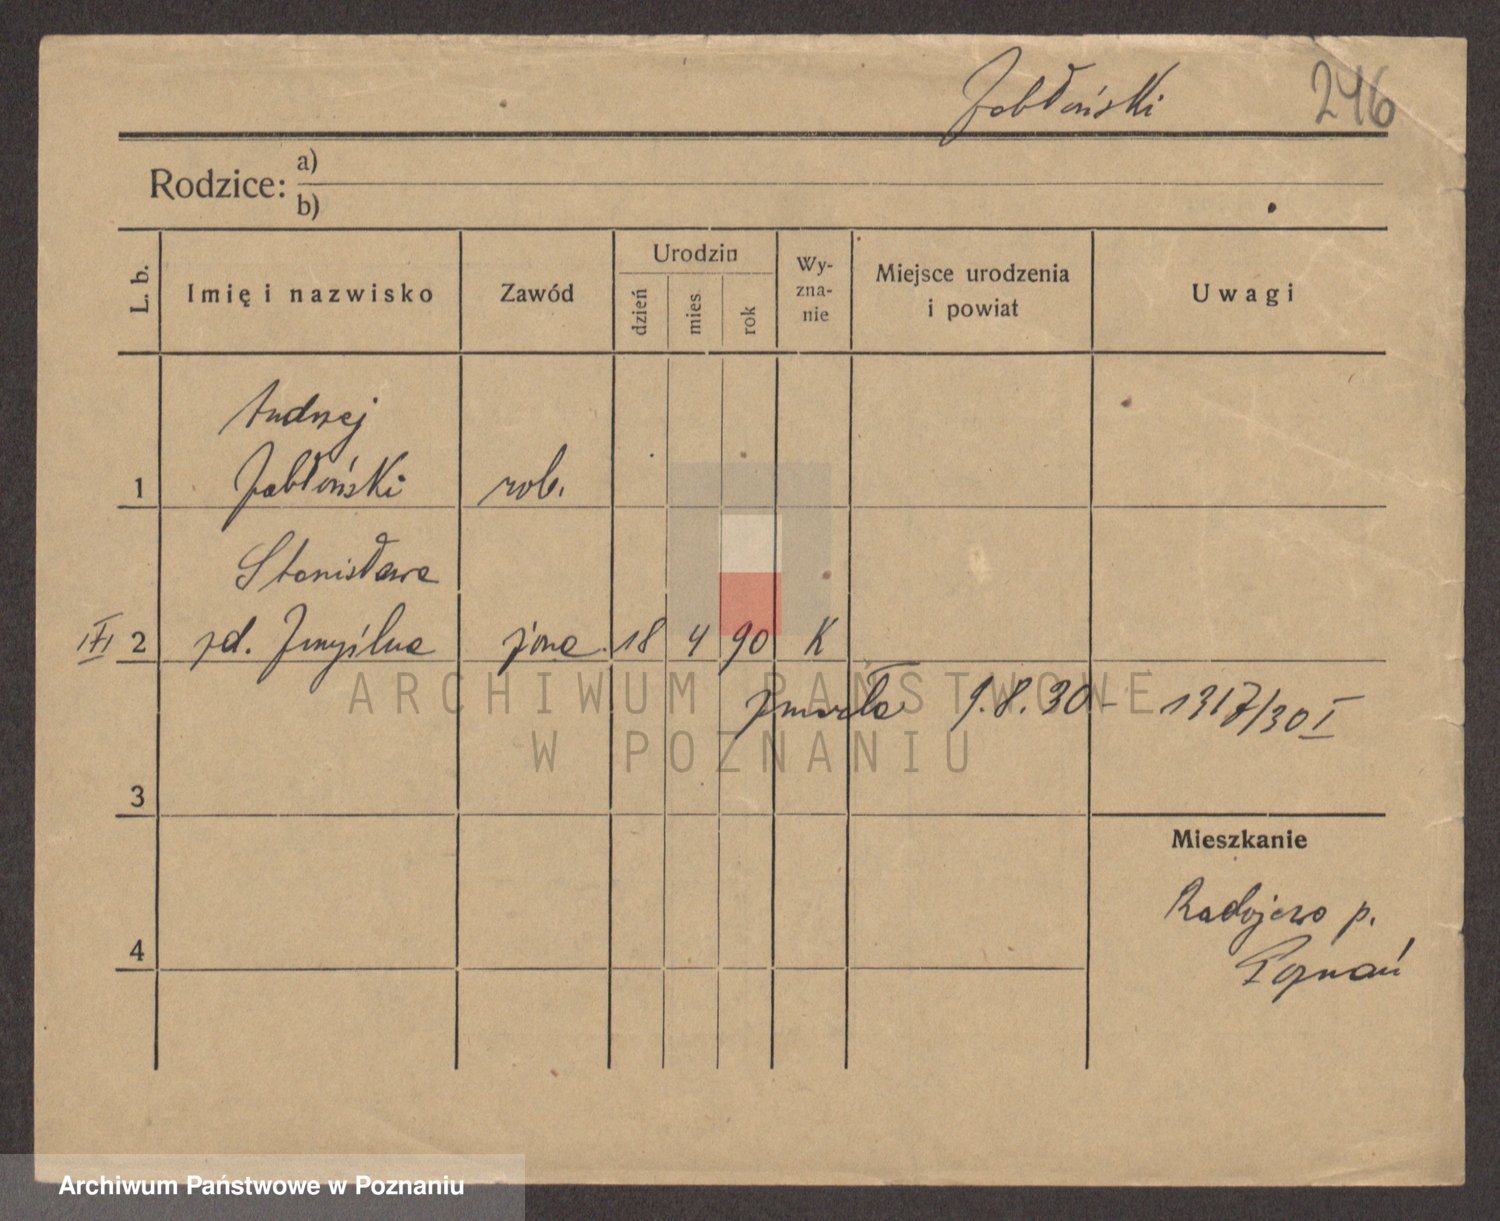 Jabłoński 246
Rodzice: a)
b)
L. b. Imię i nazwisko Zawód Urodzin dzień mies rok Wy-
zna-
nie Miejsce urodzenia
i powiat Uwagi
Andrzej
1 Jabłoński rob.
Stanisława
2 żona 18 4 90 K
zmarła 9.8.30 - 1317/30 I
3
Mieszkanie
Radojewo p.
4 Poznań
ARCHIWUM PAŃSTWOWE
W POZNANIU
Archiwum Państwowe w Poznaniu